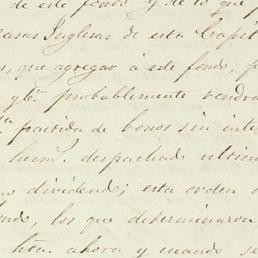 de este fondo y de lo que p
casas Inglesas de esta Capit
que agregar á este fondo; p
probablemente vendra
partida de bonos sin inte
despachada ultim
dividendo; esta orden
los que determinaron
ahora y cuando se